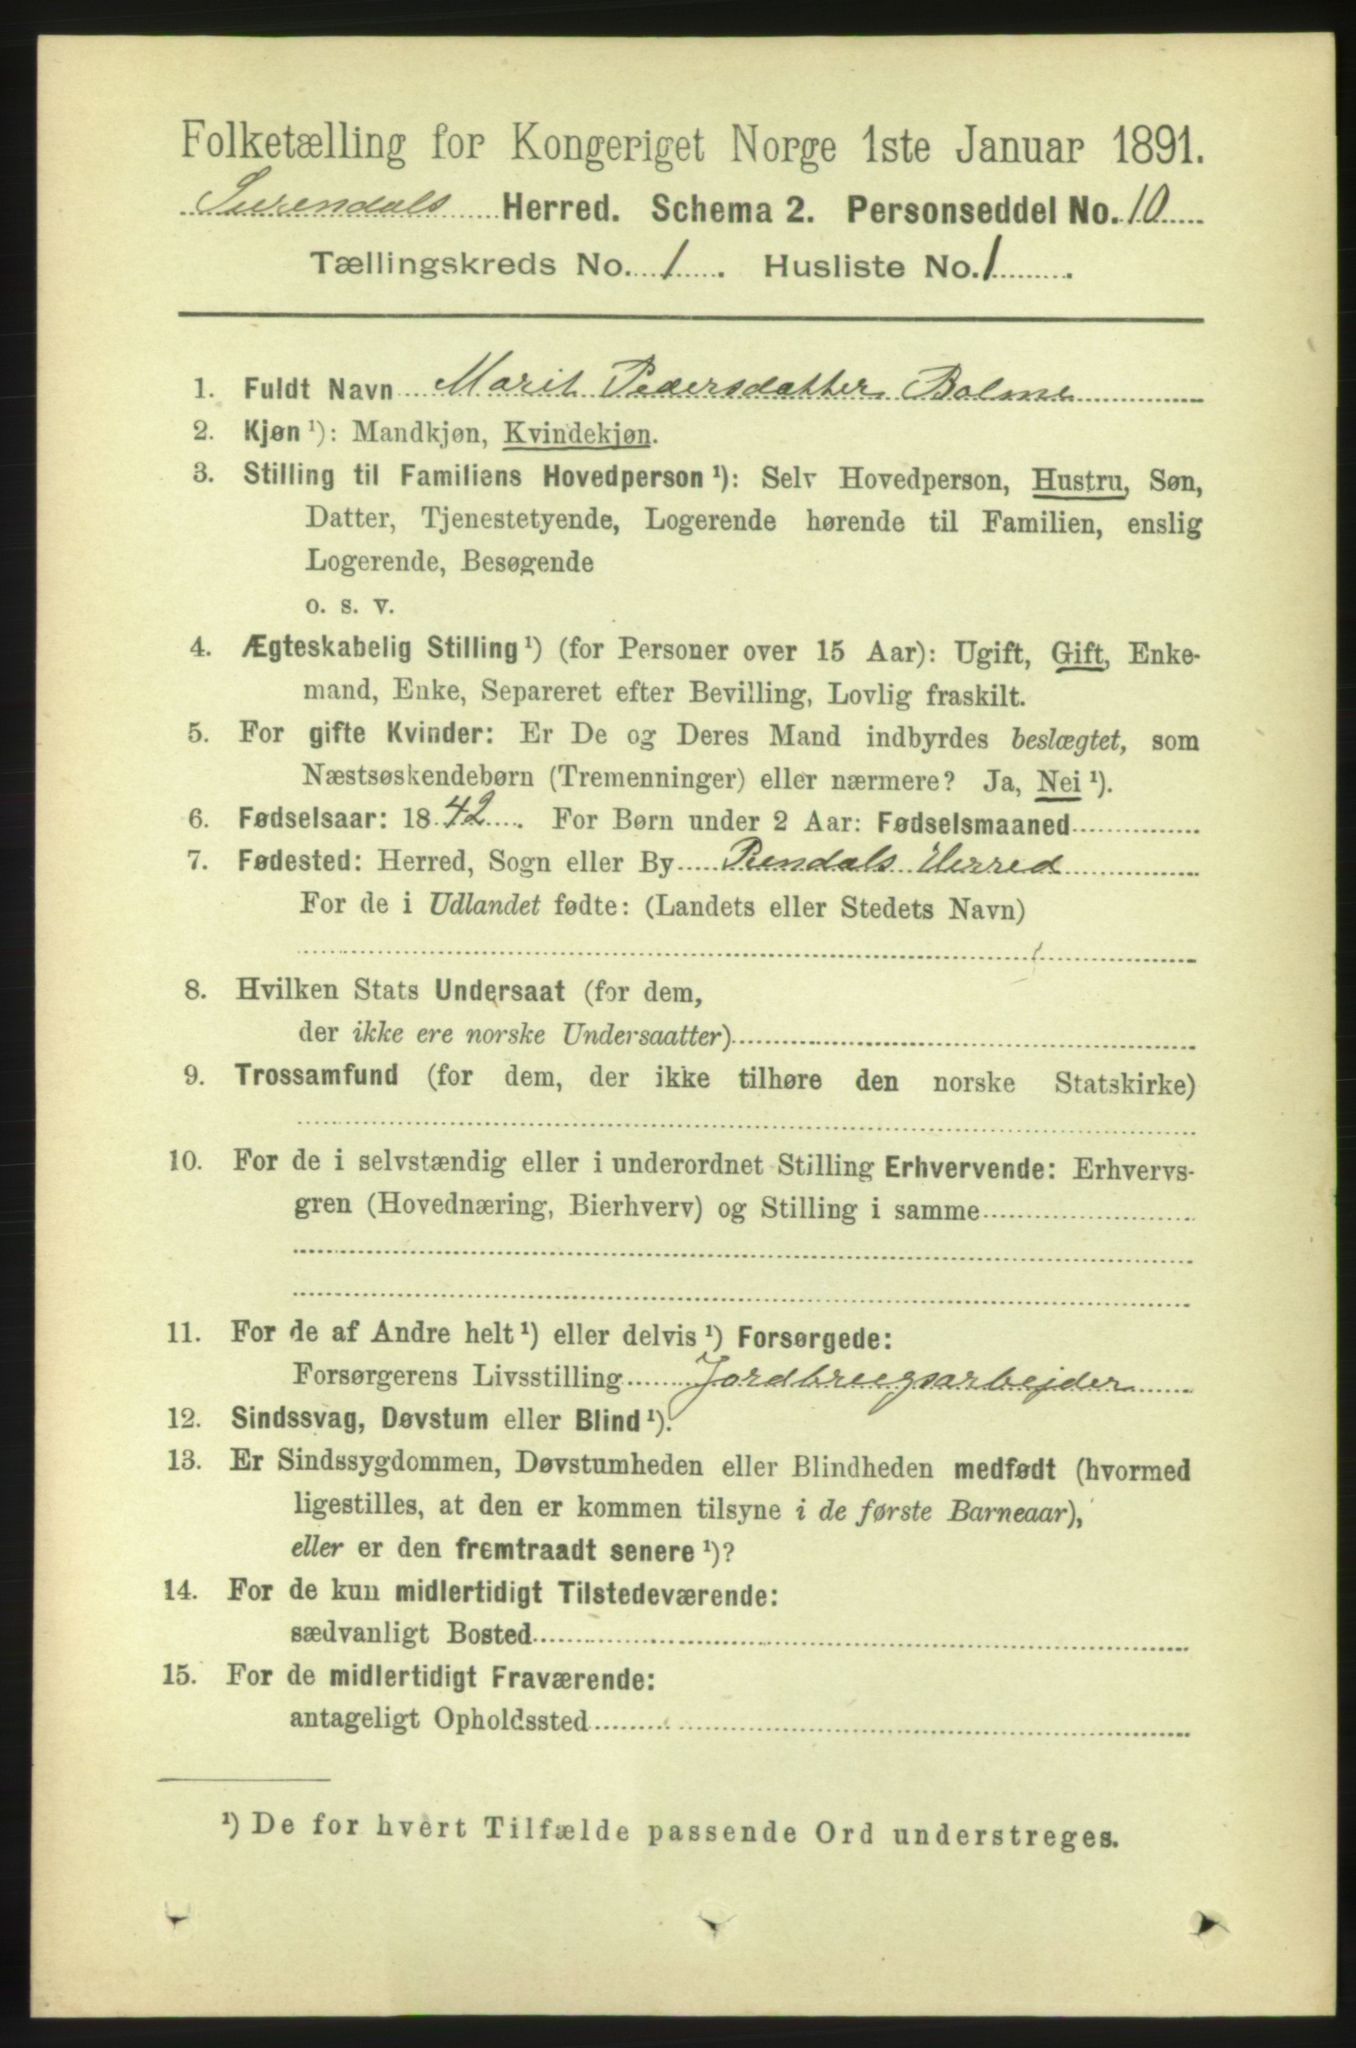 Folketælling for Kongeriget Norge 1ste Januar 1891.
Surendals Herred. Schema 2. Personseddel No. 10
Tællingskreds No. 1. Husliste No. 1.
1. Fuldt Navn Marit Pedersdatter Bolme
2. Kjøn ¹): Mandkjøn, Kvindekjøn.
3. Stilling til Familiens Hovedperson ¹): Selv Hovedperson, Hustru, Søn,
Datter, Tjenestetyende, Logerende hørende til Familien, enslig
Logerende, Besøgende
o. s. v.
4. Ægteskabelig Stilling ¹) (for Personer over 15 Aar): Ugift, Gift, Enke-
mand, Enke, Separeret efter Bevilling, Lovlig fraskilt.
5. For gifte Kvinder: Er De og Deres Mand indbyrdes beslægtet, som
Næstsøskendebørn (Tremenninger) eller nærmere? Ja, Nei ¹).
6. Fødselsaar: 1842. For Børn under 2 Aar: Fødselsmaaned
7. Fødested: Herred, Sogn eller By Rendals Herred
For de i Udlandet fødte: (Landets eller Stedets Navn)
8. Hvilken Stats Undersaat (for dem,
der ikke ere norske Undersaatter)
9. Trossamfund (for dem, der ikke tilhøre den norske Statskirke)
10. For de i selvstændig eller i underordnet Stilling Erhvervende: Erhvervs-
gren (Hovednæring, Bierhverv) og Stilling i samme
11. For de af Andre helt ¹) eller delvis ¹) Forsørgede:
Forsørgerens Livsstilling Jordbrugsarbejder
12. Sindssvag, Døvstum eller Blind ¹).
13. Er Sindssygdommen, Døvstumheden eller Blindheden medfødt (hvormed
ligestilles, at den er kommen tilsyne i de første Barneaar),
eller er den fremtraadt senere ¹)?
14. For de kun midlertidigt Tilstedeværende:
sædvanligt Bosted
15. For de midlertidigt Fraværende:
antageligt Opholdssted
¹) De for hvert Tilfælde passende Ord understreges.